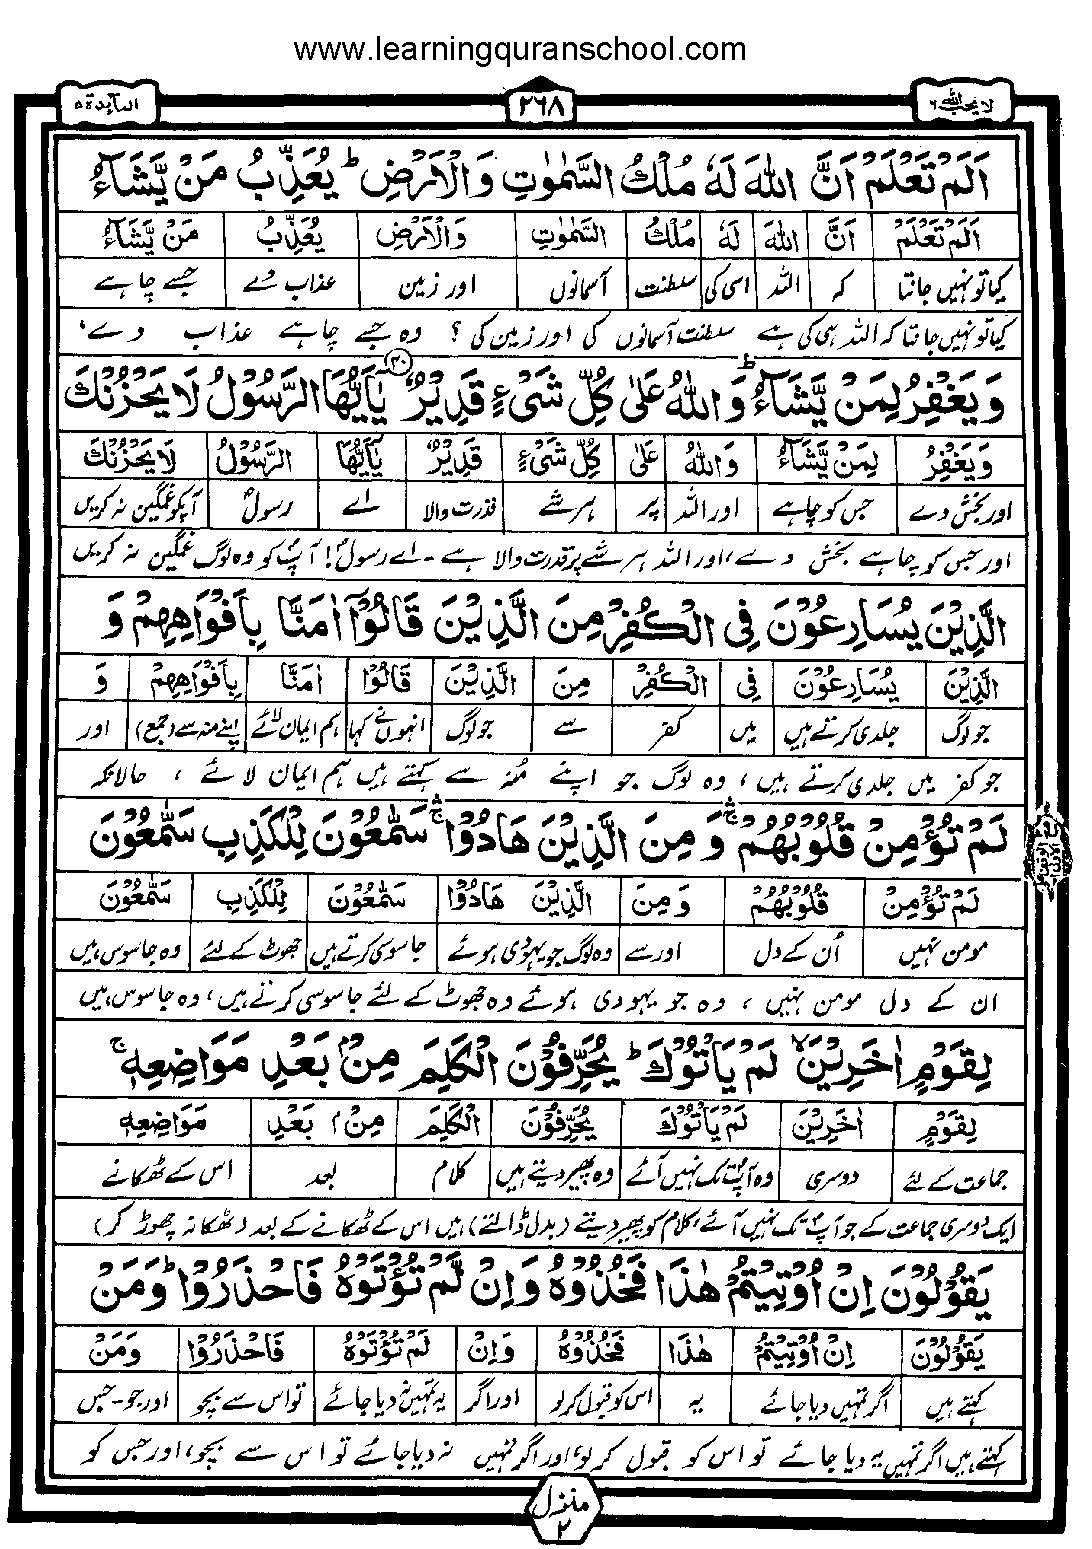 www.learningquranschool.com
لا يحب الله ٦
٢٦٨
المآئدة ٥
اَلَمْ تَعْلَمْ اَنَّ اللّٰهَ لَهٗ مُلْكُ السَّمٰوٰتِ وَالْاَرْضِ ؕ يُعَذِّبُ مَنْ يَّشَآءُ
اَلَمْ تَعْلَمْ اَنَّ اللّٰهَ لَهٗ مُلْكُ السَّمٰوٰتِ وَالْاَرْضِ يُعَذِّبُ مَنْ يَّشَآءُ
کیا تو نہیں جانتا کہ اللہ اسی کی سلطنت آسمانوں اور زمین عذاب دے جسے چاہے
کیا تو نہیں جانتا کہ اللہ ہی کی ہے سلطنت آسمانوں کی اور زمین کی ؟ وہ جسے چاہے عذاب دے،
وَ يَغْفِرُ لِمَنْ يَّشَآءُ ؕ وَاللّٰهُ عَلٰى كُلِّ شَىْءٍ قَدِيْرٌ ۴۰ يٰۤاَيُّهَا الرَّسُوْلُ لَا يَحْزُنْكَ
وَ يَغْفِرُ لِمَنْ يَّشَآءُ وَاللّٰهُ عَلٰى كُلِّ شَىْءٍ قَدِيْرٌ يٰۤاَيُّهَا الرَّسُوْلُ لَا يَحْزُنْكَ
اور بخش دے جس کو چاہے اور اللہ پر ہر شے قدرت والا اے رسولؐ آپکو غمگین نہ کریں
اور جس کو چاہے بخش دے، اور اللہ ہر شے پر قدرت والا ہے ۔ اے رسولؐ! آپؐ کو وہ لوگ غمگین نہ کریں
الَّذِيْنَ يُسَارِعُوْنَ فِى الْكُفْرِ مِنَ الَّذِيْنَ قَالُوْۤا اٰمَنَّا بِاَفْوَاهِهِمْ وَ
الَّذِيْنَ يُسَارِعُوْنَ فِى الْكُفْرِ مِنَ الَّذِيْنَ قَالُوْٓا اٰمَنَّا بِاَفْوَاهِهِمْ وَ
جو لوگ جلدی کرتے ہیں میں کفر سے جو لوگ انہوں نے کہا ہم ایمان لائے اپنے منہ سے (جمع) اور
جو کفر میں جلدی کرتے ہیں، وہ لوگ جو اپنے منہ سے کہتے ہیں ہم ایمان لائے ، حالانکہ
لَمْ تُؤْمِنْ قُلُوْبُهُمْ ۛۚ وَ مِنَ الَّذِيْنَ هَادُوْا ۛۚ سَمّٰعُوْنَ لِلْكَذِبِ سَمّٰعُوْنَ
لَمْ تُؤْمِنْ قُلُوْبُهُمْ وَ مِنَ الَّذِيْنَ هَادُوْا سَمّٰعُوْنَ لِلْكَذِبِ سَمّٰعُوْنَ
مومن نہیں اُن کے دل اور سے وہ لوگ جو یہودی ہوئے جاسوسی کرتے ہیں جھوٹ کے لئے وہ جاسوس ہیں
ان کے دل مومن نہیں ، وہ جو یہودی ہوئے وہ جھوٹ کے لئے جاسوسی کرتے ہیں، وہ جاسوس ہیں
لِقَوْمٍ اٰخَرِيْنَ ۙ لَمْ يَاْتُوْكَ ؕ يُحَرِّفُوْنَ الْكَلِمَ مِنْۢ بَعْدِ مَوَاضِعِهٖ ۚ
لِقَوْمٍ اٰخَرِيْنَ لَمْ يَاْتُوْكَ يُحَرِّفُوْنَ الْكَلِمَ مِنْۢ بَعْدِ مَوَاضِعِهٖ
جماعت کے لئے دوسری وہ آپؐ تک نہیں آئے وہ پھیر دیتے ہیں کلام بعد اس کے ٹھکانے
ایک دوسری جماعت کے جو آپؐ تک نہیں آئے، کلام کو پھیر دیتے (بدل ڈالتے) ہیں اس کے ٹھکانے کے بعد (ٹھکانہ چھوڑ کر)
يَقُوْلُوْنَ اِنْ اُوْتِيْتُمْ هٰذَا فَخُذُوْهُ وَاِنْ لَّمْ تُؤْتَوْهُ فَاحْذَرُوْا ؕ وَمَنْ
يَقُوْلُوْنَ اِنْ اُوْتِيْتُمْ هٰذَا فَخُذُوْهُ وَاِنْ لَّمْ تُؤْتَوْهُ فَاحْذَرُوْا وَمَنْ
کہتے ہیں اگر تمہیں دیا جائے یہ اس کو قبول کر لو اور اگر یہ تمہیں نہ دیا جائے تو اس سے بچو اور جو۔جس
کہتے ہیں اگر تمہیں یہ دیا جائے تو اس کو قبول کر لو، اور اگر تمہیں نہ دیا جائے تو اس سے بچو، اور جس کو
منزل ٢